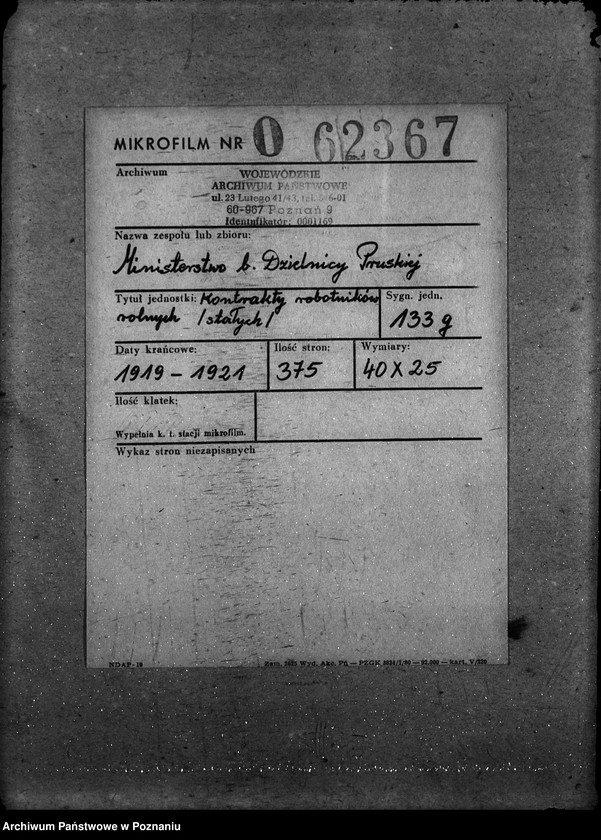 MIKROFILM NR O 62367
Archiwum
WOJEWÓDZKIE
ARCHIWUM PAŃSTWOWE
ul. 23 Lutego 41/43, tel. 5-6-01
60-967 Poznań 9
Identyfikator: 0001169
Nazwa zespołu lub zbioru:
Ministerstwo b. Dzielnicy Pruskiej
Tytuł jednostki: Kontrakty robotników
rolnych /stałych/
Sygn. jedn.
133 g
Daty krańcowe:
1919 – 1921
Ilość stron:
375
Wymiary:
40 X 25
Ilość klatek:
Wypełnia k. t. stacji mikrofilm.
Wykaz stron niezapisanych
NDAP-18
Wyd. Akc. Pń — PZGK
kart. V/
Archiwum Państwowe w Poznaniu